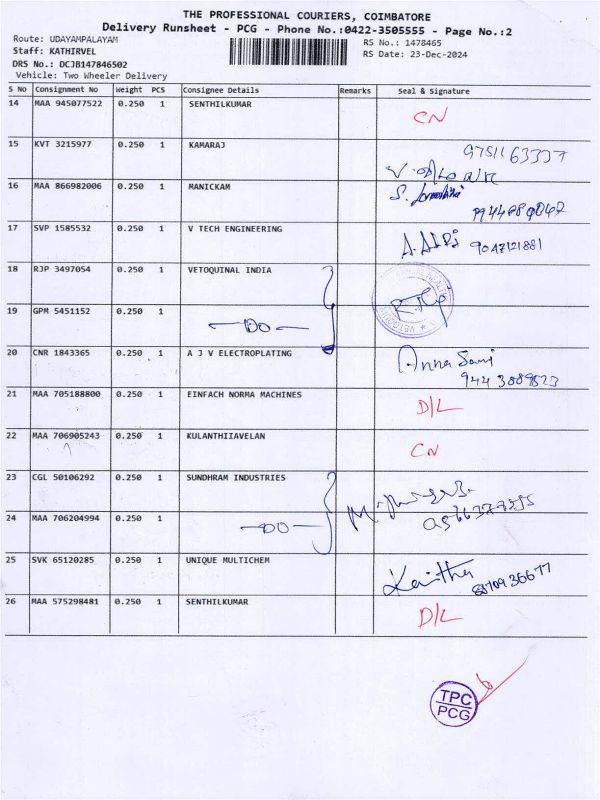 THE PROFESSIONAL COURIERS, COIMBATORE
Delivery Runsheet - PCG - Phone No.:0422-3505555 - Page No.:2
Route: UDAYAMPALAYAM
RS No.: 1478465
Staff: KATHIRVEL
RS Date: 23-Dec-2024
DRS No.: DCJB147846502
Vehicle: Two Wheeler Delivery
S No Consignment No Weight PCS Consignee Details Remarks Seal & Signature
14 MAA 945077522 0.250 1 SENTHILKUMAR CN
15 KVT 3215977 0.250 1 KAMARAJ
16 MAA 866982006 0.250 1 MANICKAM
17 SVP 1585532 0.250 1 V TECH ENGINEERING 9047121881
18 RJP 3497054 0.250 1 VETOQUINAL INDIA
19 GPM 5451152 0.250 1
—DO—
20 CNR 1843365 0.250 1 A J V ELECTROPLATING Anna Sami
21 MAA 705188800 0.250 1 EINFACH NORMA MACHINES D/L
22 MAA 706905243 0.250 1 KULANTHIIAVELAN CN
23 CGL 50106292 0.250 1 SUNDHRAM INDUSTRIES
24 MAA 706204994 0.250 1
—DO—
25 SVK 65120285 0.250 1 UNIQUE MULTICHEM Kavitha
26 MAA 575298481 0.250 1 SENTHILKUMAR D/L
TPC
PCG